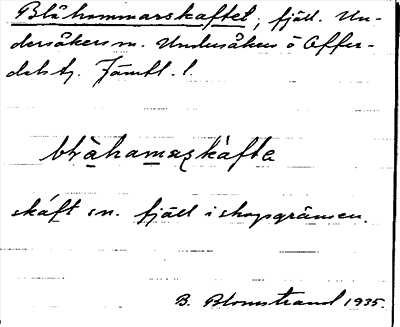 Blåhammarskaftet, fjäll. Un-
dersåkers sn. Undersåkers o Offer-
dals tg. Jämtl. l.
blåhamaṣkafta
skáft sn. fjäll i skogsgränsen.
B. Blomstrand 1935.